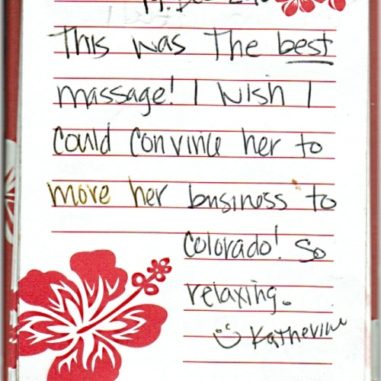 This was The best
massage! I wish I
could convince her to
move her business to
Colorado! So
relaxing.
Katherine